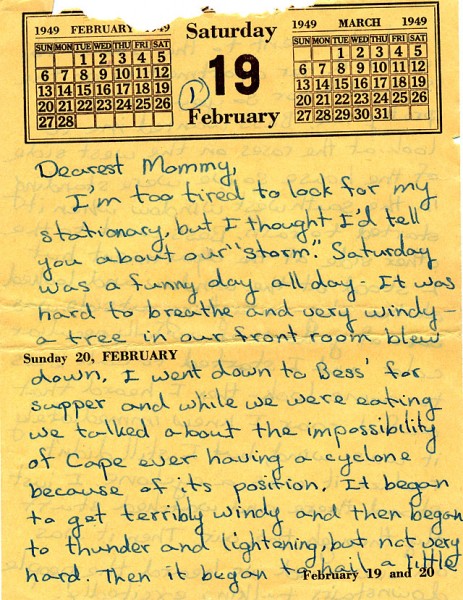 1949 FEBRUARY 1949
SUN MON TUE WED THU FRI SAT
1 2 3 4 5
6 7 8 9 10 11 12
13 14 15 16 17 18 19
20 21 22 23 24 25 26
27 28
Saturday
1
19
February
1949 MARCH 1949
SUN MON TUE WED THU FRI SAT
1 2 3 4 5
6 7 8 9 10 11 12
13 14 15 16 17 18 19
20 21 22 23 24 25 26
27 28 29 30 31
Dearest Mommy,
I'm too tired to look for my
stationary, but I thought I'd tell
you about our "storm." Saturday
was a funny day all day. It was
hard to breathe and very windy –
a tree in our front room blew
Sunday 20, FEBRUARY
down. I went down to Bess' for
supper and while we were eating
we talked about the impossibility
of Cape ever having a cyclone
because of its position. It began
to get terribly windy and then began
to thunder and lightening, but not very
hard. Then it began to hail a little
February 19 and 20